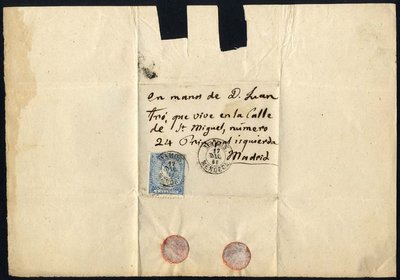 en mano de D. Juan
que vive en la Calle
de Sn Miguel, numero
24 Principal izquierda
Madrid
17
17